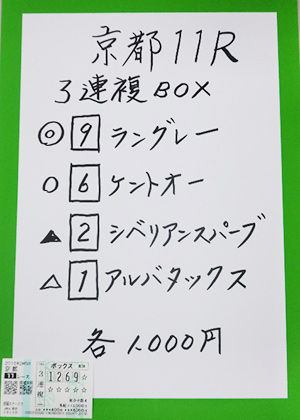 京都11R
3連複BOX
◎ 9 ラングレー
○ 6 ケントオー
▲ 2 シベリアンスパーブ
△ 1 アルバタックス
各1,000円
京都
11レース
3連複
ボックス
1269
☆☆☆